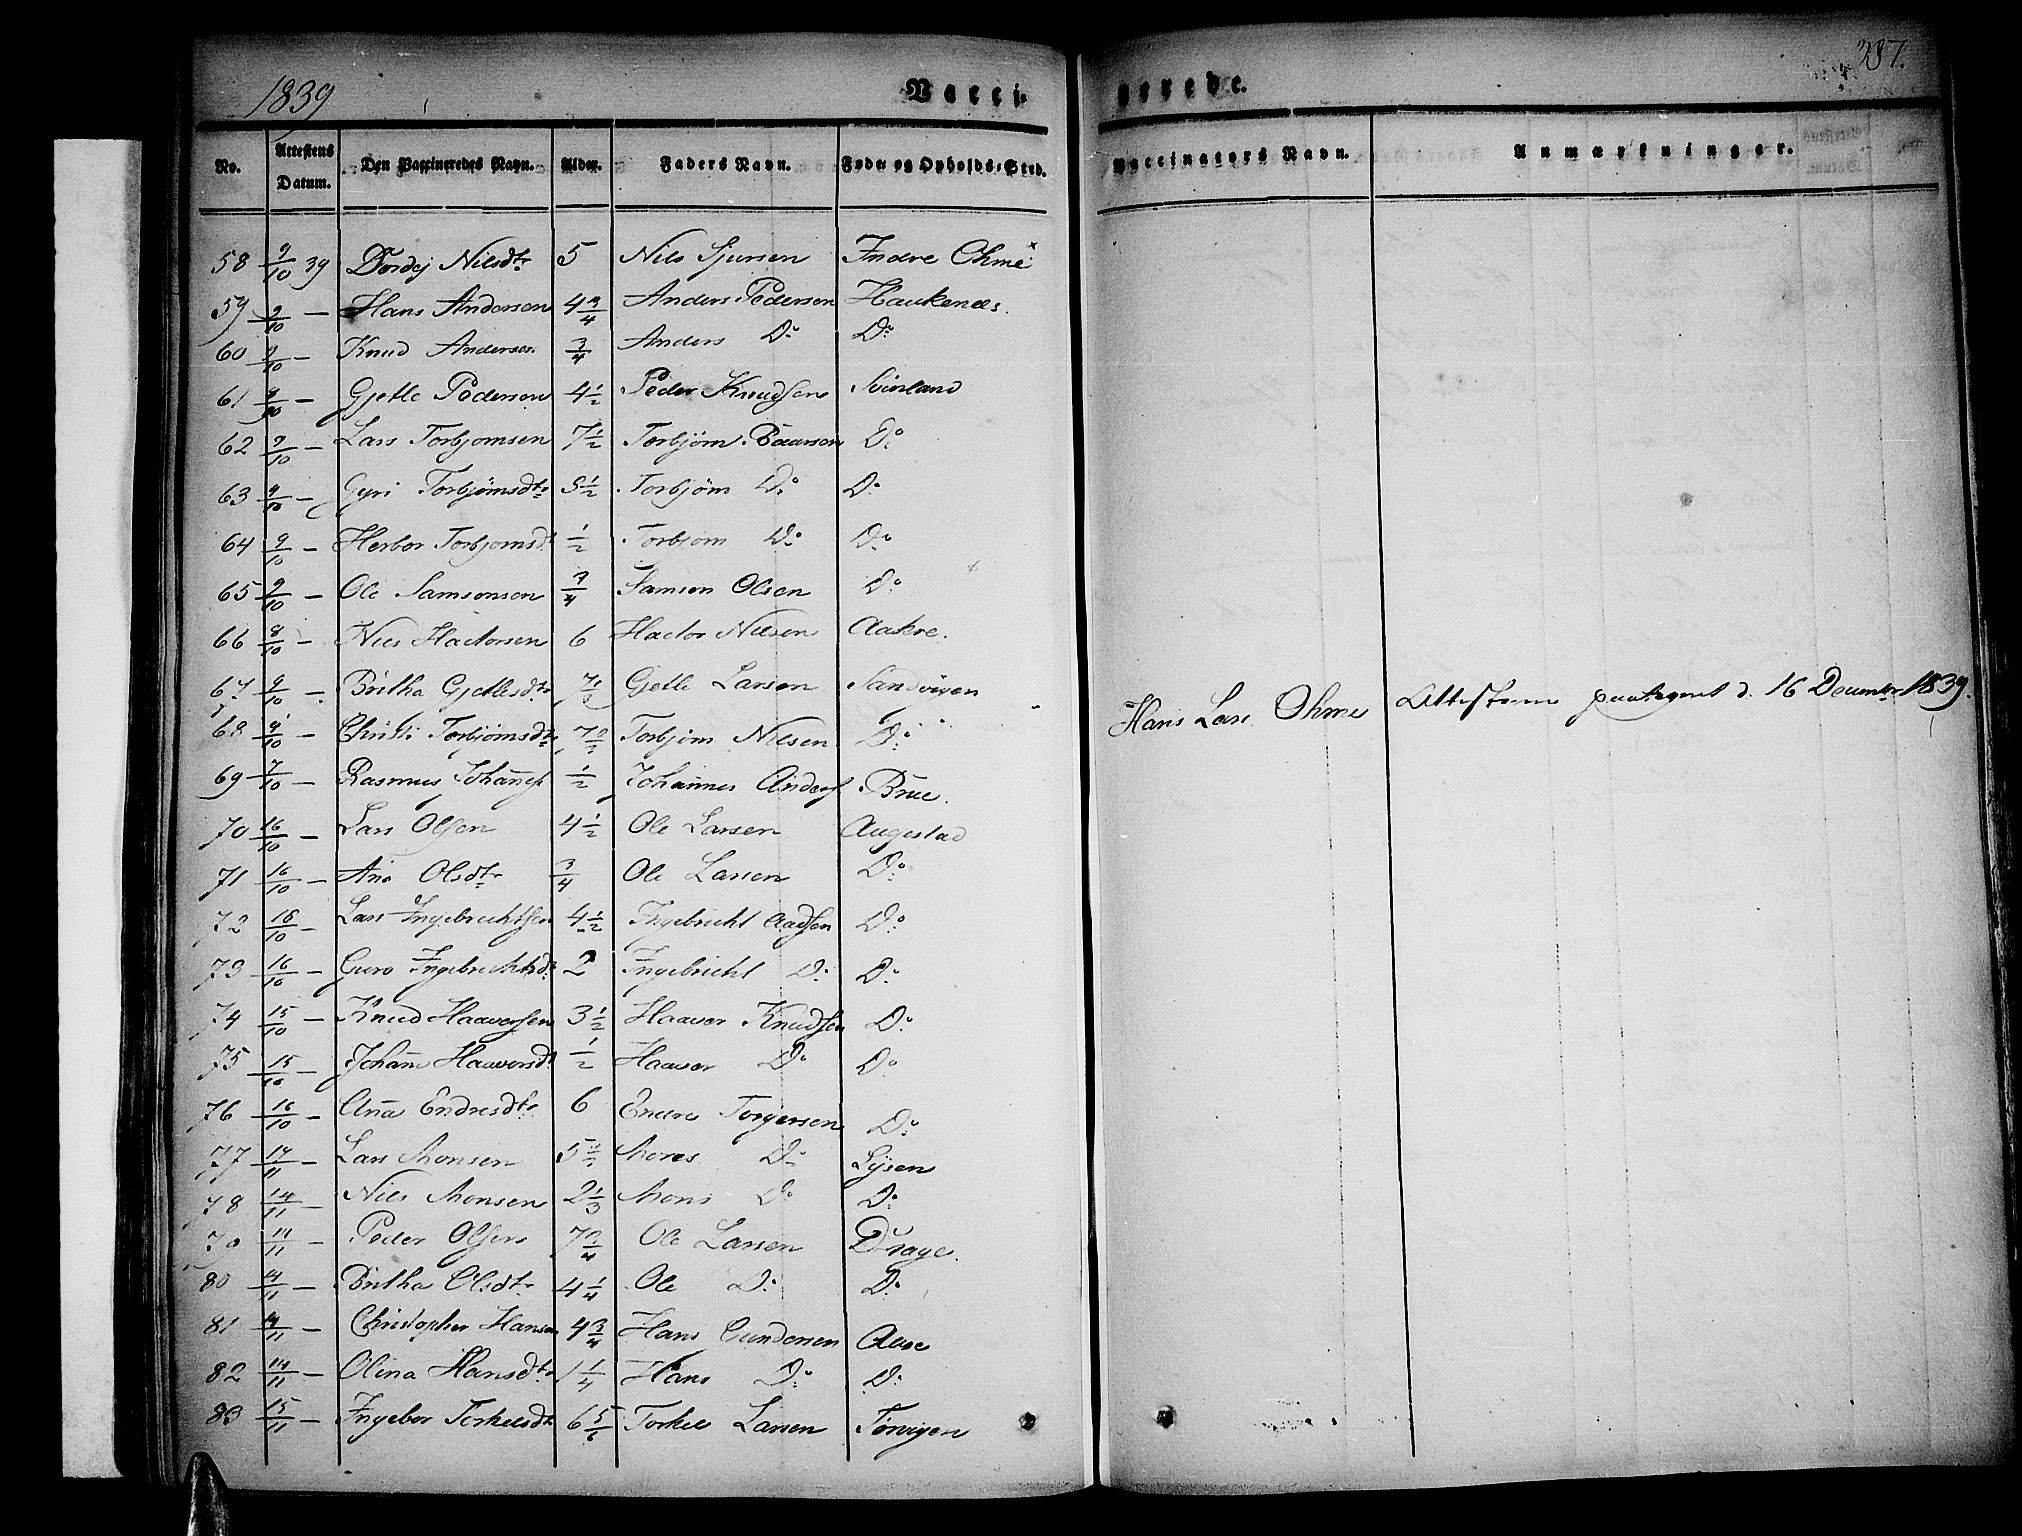 1839 Vacci- nerede. 287.
No. Attestens Datum. Den Vaccineredes Navn. Alder. Faders Navn. Føde og Opholds-Sted. Vaccinators Navn. Anmærkninger.
58 9/10 39 Dordej Nilsdtr 5 Nils Sjursen Indre Ohme
59 9/10 — Hans Andersen 4 3/4 Anders Pedersen Haukenæs.
60 9/10 — Knud Andersen 3/4 Anders Do Do
61 9/10 — Gjetle Pedersen 4 1/2 Peder Knudsen Svinland
62 9/10 — Lars Torbjørnsen 7 1/2 Torbjørn Baarsen Do
63 9/10 — Gyri Torbjørnsdtr 5 1/2 Torbjørn Do Do
64 9/10 — Herbor Torbjornsdt 1/2 Torbjørn Do Do
65 9/10 — Ole Samsonsen 3/4 Samson Olsen Do
66 8/10 — Niels Hactorsen 6 Hactor Nilsen Aakre.
67 9/10 — Britha Gjetlesdtr 7 1/2 Gjetle Larsen Sandvigen
68 9/10 — Christi Torbjørnsdtr Torbjørn Nilsen Do
69 7/10 — Rasmus Johannes 1/2 Johannes Anders Brue.
70 16/10 — Lars Olsen 4 1/2 Ole Larsen Augestad
71 16/10 — Ana Olsdtr 3/4 Ole Larsen Do
72 16/10 — Lars Ingebrechtsen 4 1/2 Ingebricht Aadsen Do
73 16/10 — Guro Ingebrechtsd 2 Ingebricht Do Do
74 15/10 — Knud Haaversen 3 1/2 Haaver Knudsen Do
75 15/10 — Johanne Haaversdt 1/2 Haaver Do Do
76 16/10 — Anna Endresdtr 6 Endre Torgersen Do
77 14/11 — Lars Monsen 5 1/2 Mons Do Lysen
78 14/11 — Niels Monsen 2 1/3 Mons Do Do
79 14/11 — Peder Olsen 7 3/4 Ole Larsen Drage.
80 14/11 — Britha Olsdtr 4 1/4 Ole Do Do
81 14/11 — Christopher Hansen 4 3/4 Hans Gundersen Ause
82 14/11 — Olina Hansdtr 1 1/4 Hans Do Do
83 15/11 — Ingebor Torkelsdtr 6 5/6 Torkel Larsen Tørvigen
Hans Lars Ohme Attesterne paategnet d. 16 Decembr 1839.